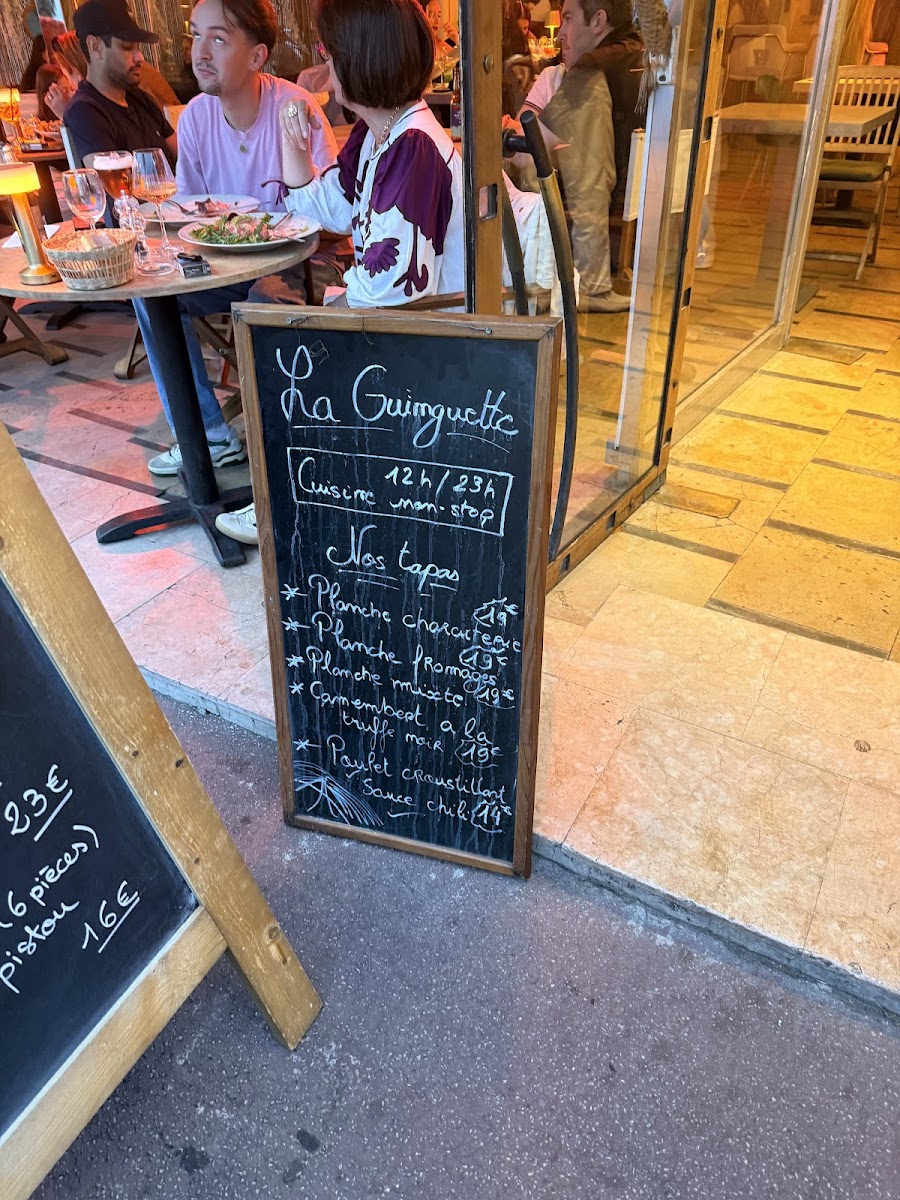 La Guinguette
12h/23h
Cuisine non-stop
Nos tapas
* Planche charcuterie 19€
* Planche fromages 19€
* Planche mixte 19€
* Camembert a la
truffe noir 19€
* Poulet croustillant
Sauce chili 14€
23€
(6 pièces)
pistou 16€